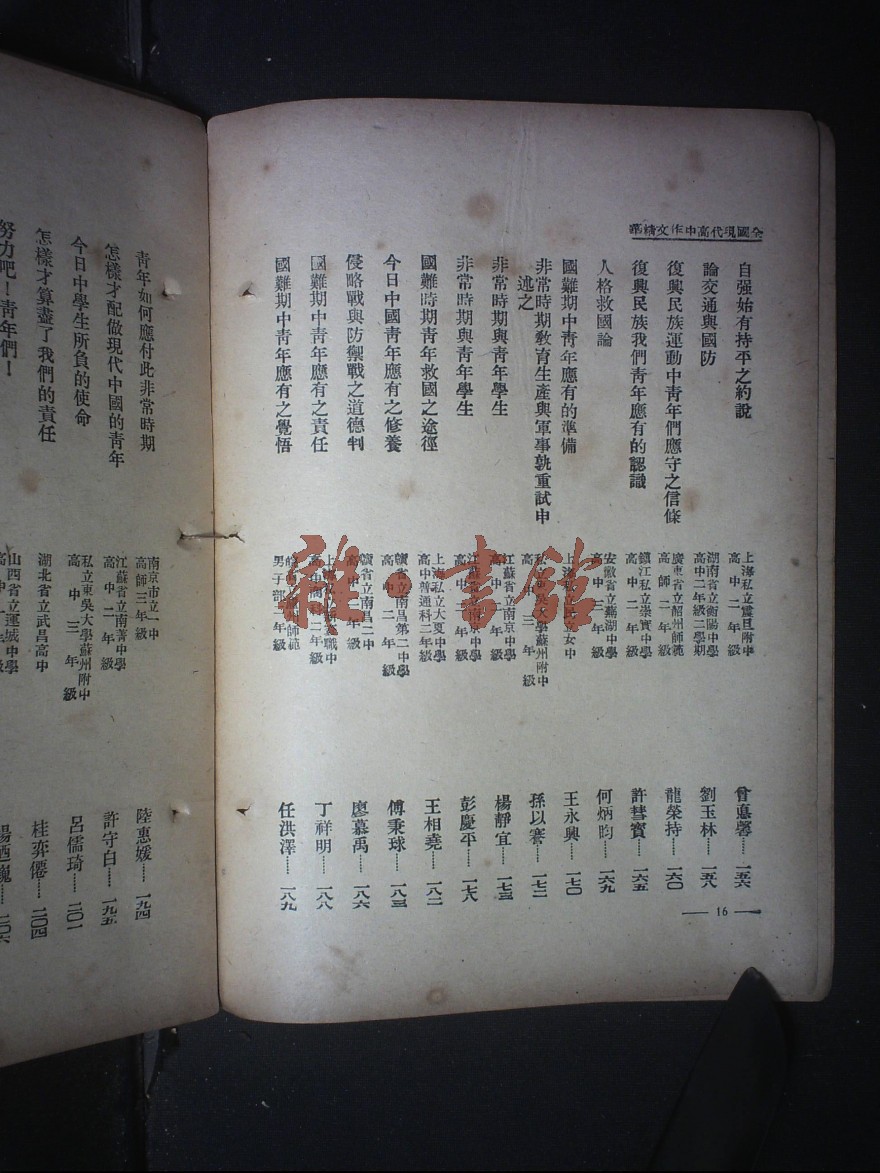 全國現代高中作文精華
自强始有持平之約說
上海私立震旦附中
高中二年級
曾惠馨……一五六
論交通與國防
湖南省立衡陽中學
高中二年級二學期
劉玉林……一五八
復興民族運動中青年們應守之信條
廣東省立韶州師範
高師二年級
龍榮持……一六〇
復興民族我們青年應有的認識
鎮江私立崇實中學
高中二年級
許彗寶……一六五
人格救國論
安徽省立蕪湖中學
高中三年級
何炳昀……一六九
國難期中青年應有的準備
上海私立女中
王永興……一七〇
非常時期教育生產與軍事孰重試申
述之
私立東吳大學蘇州附中
高中三年級
孫以謇……一七二
非常時期與青年學生
江蘇省立南京中學
高中二年級
楊靜宜……一七三
非常時期與青年學生
江蘇省立南京中學
高中二年級
彭慶平……一七八
國難時期青年救國之途徑
上海私立大夏中學
高中普通科二年級
王相堯……一八二
今日中國青年應有之修養
贛省立南昌第二中學
高中二年級
傅秉球……一八三
侵略戰與防禦戰之道德判
贛省立南昌二中
高中年級
廖慕禹……一八六
國難期中青年應有之責任
高中商科二年級
丁祥明……一八八
國難期中青年應有之覺悟
師範
男子部年級
任洪澤……一八九
— 16 —
青年如何應付此非常時期
南京市立一中
高師三年級
陸惠媛……一九四
怎樣才配做現代中國的青年
江蘇省立南菁中學
高中二年級
許守白……一九五
今日中學生所負的使命
私立東吳大學蘇州附中
高中三年級
呂儒琦……二〇一
怎樣才算盡了我們的責任
湖北省立武昌高中
桂弈僊……二〇四
努力吧！青年們！
山西省立運城中學
高中年級
楊迺巍……二〇六
雜·書館